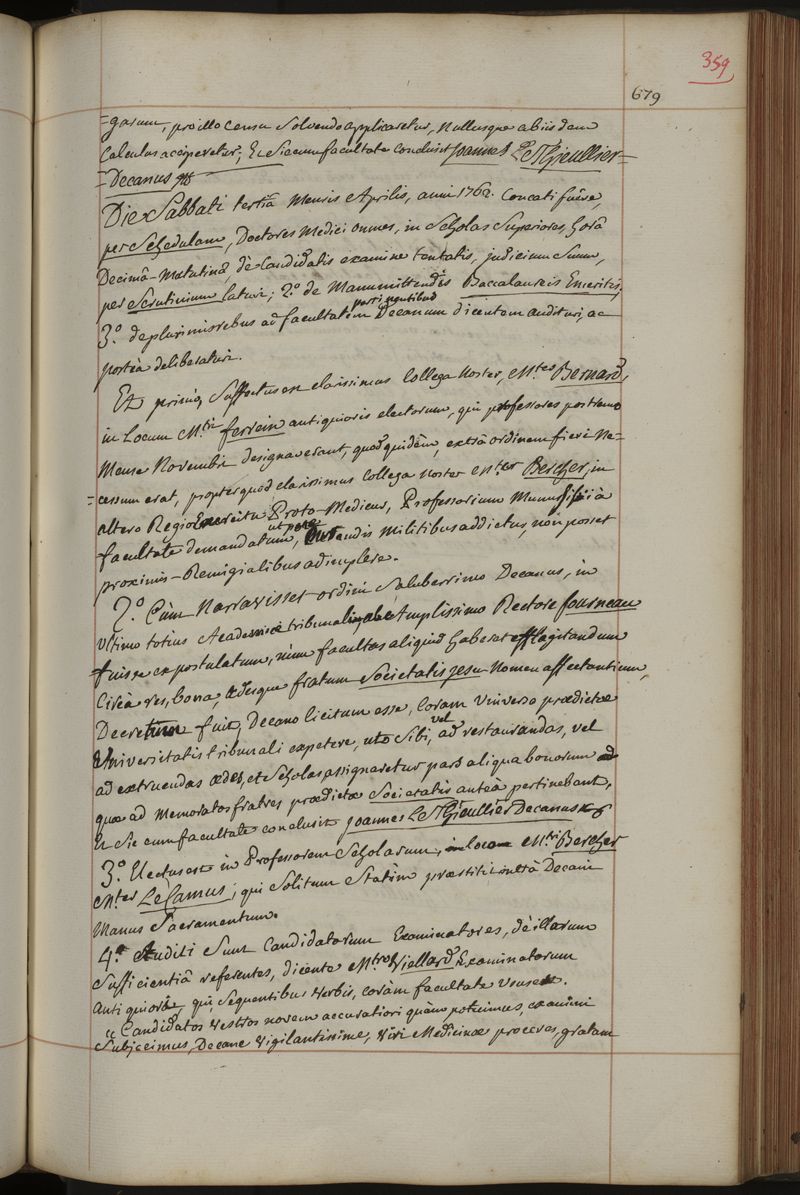 359
679
=garum, pro illo censu solvendo applicaretur, nullusque ab iisdem
calculus acciperetur; Et sic cum facultate conclusit Joannes Le Thieullier=
=Decanus
Die Sabbati tertiâ Mensis Aprilis, anni 1762. Convocati fuêre,
per Schedulam, Doctores Medici omnes, in Scholas Superiores, horâ
Decimâ-Matutinâ de Candidatis examine tentatis, judicium suum,
per Scrutinium laturi; 2.º de Manumittendis Baccalaureis Emeritis;
3.º de plurimis rebus ad facultatem pertinentibus Decanum dicentem audituri, ac
posteà deliberaturi.
Et primò, Suffectus est clarissimus Collega Noster, M.ter Bernard,
in Locum M.tri ferrein antiquioris electorum, qui professores postremo
Mense Novembri designaverant, quod quidèm, extrà ordinem fieri Ne=
=cessum erat, propter quod clarissimus Collega Noster M.ter Bercher, in
altero Regio Exercitu Proto-Medicus, Professorium Munus sibi à
facultate demandatum, ut pote curandis Militibus addictus, non posset
proximis-Remigialibus adimplere.
2.º Cùm Narravisset ordini Saluberrimo Decanus, in
Ultimo totius Academiæ tribunali, ab Amplissimo Rectore fourneau
fuisse expostulatum, nùm facultas aliquid haberet efflagitandum
Circà res, bona, ædesque fratrum Societatis Jesu Nomen affectantium,
Decretum fuit, Decano licitum esse, Coram Universo prædictæ
Universitatis tribunali expetere, ut Sibi, vel ad restaurandas, vel
ad extruendas ædes, et Scholas assignaretur pars aliqua bonorum
quæ ad Memoratos fratres prædictæ Societatis anteà pertinebant,
Et Sic cum facultate conclusit Joannes Le Thieullier Decanus
3.º Electus est in Professorem Scholarum, in locum M.tri Bercher
M.ter Le Camus, qui Solitum Statìm præstitit intrà Decani
Manus Sacramentum.
4.º Auditi Sunt Candidatorum Examinatores, de illorum
Sufficientiâ referentes, dicente M.tro Viellard Examinatorum
Antiquiore qui, Sequentibus Verbis, coràm facultate Usus est.
"Candidatos Vestros novem accuratiori quàm potuimus, examini
Subjecimus, Decane Vigilantissime, Viri Medicinæ proceres, gratam